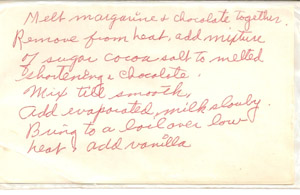 Melt margarine & chocolate together.
Remove from heat, add mixture
of sugar cocoa salt to melted
shortening & chocolate.
Mix till smooth,
Add evaporated, milk slowly.
Bring to a boil over low
heat & add vanilla